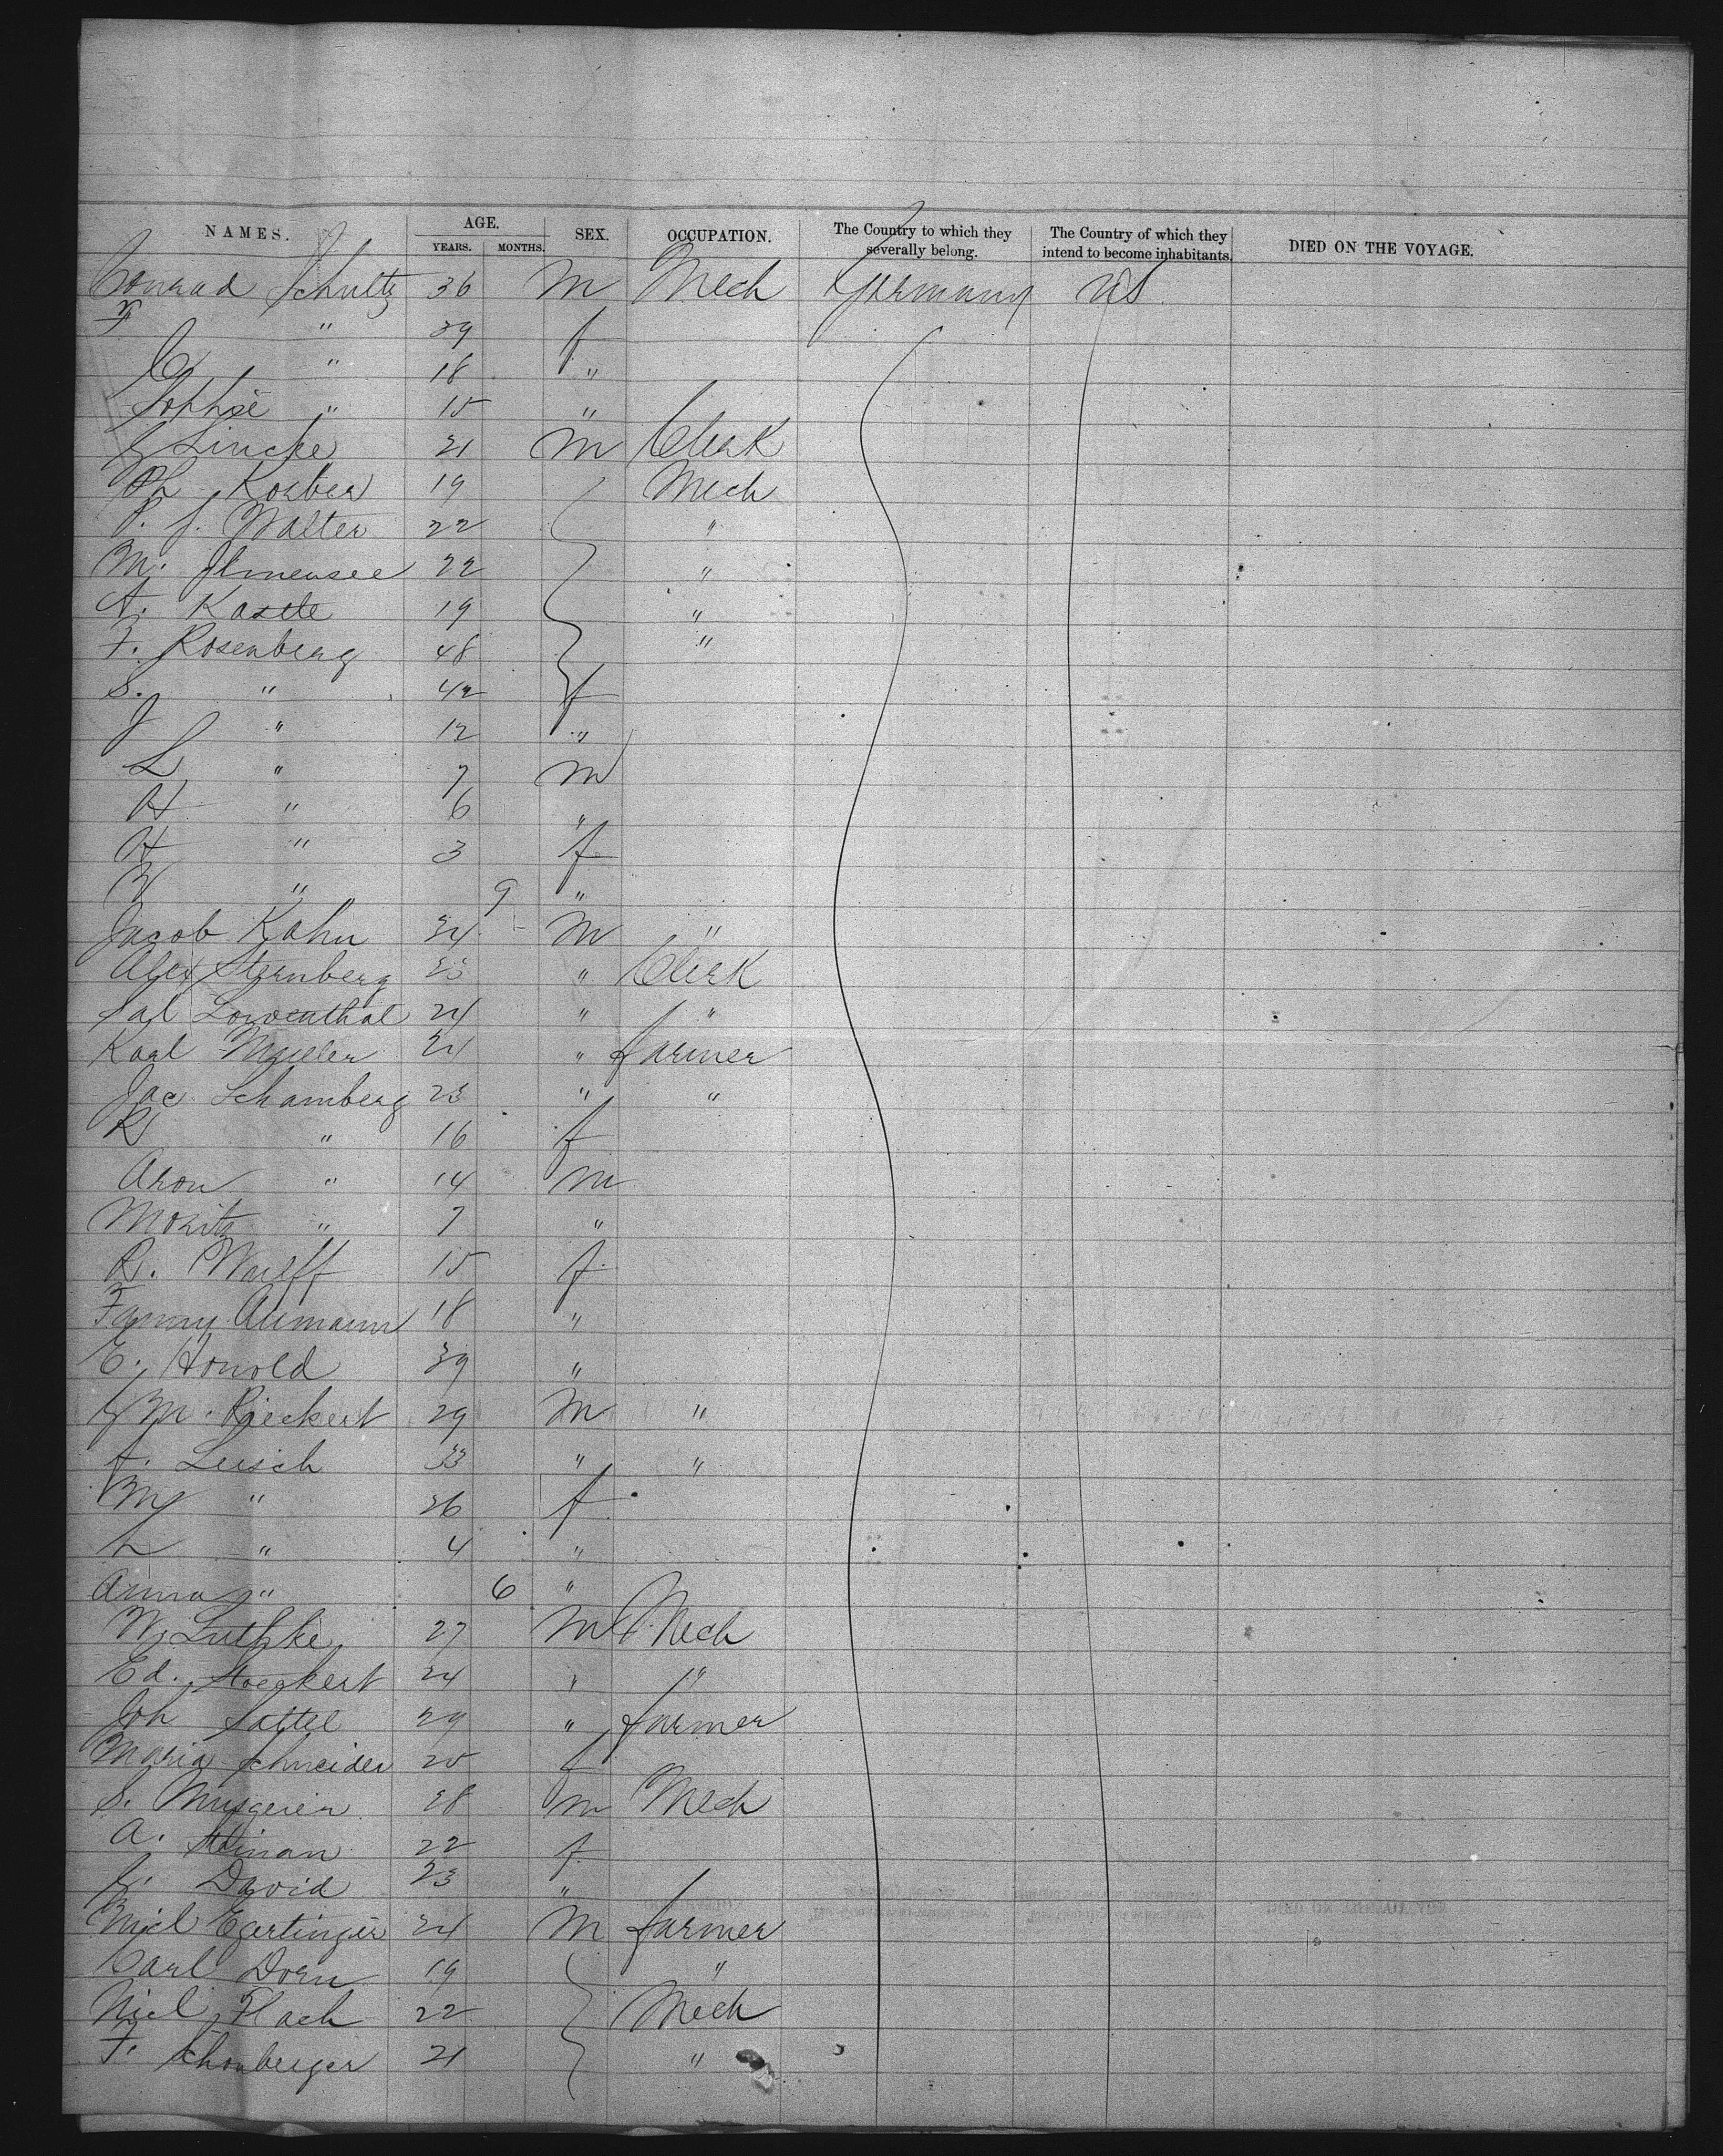 NAMES. AGE. YEARS. MONTHS. SEX. OCCUPATION. The Country to which they severally belong. The Country of which they intend to become inhabitants. DIED ON THE VOYAGE.
Conrad Schultz 36 M Mech Germany US
F " 39 f
C " 18 "
Sophie " 15 "
G Lincke 21 M Clerk
Ph Korber 19 Mech
P. J. Walter 22 "
M. Ilmensee 22 "
A. Kastle 19 "
F. Rosenberg 48 "
S. " 42 f
J " 12 "
L " 7 M
H " 6 "
H " 3 f
" 9 "
Jacob Kahn 34 M "
Alex Sternberg 23 " Clerk
Sal Lowenthal 24 " "
Karl Muller 24 " farmer
Jac. Schamberg 23 " "
R " 16 f
Aron " 14 m
Moritz " 7 "
R. Wulff 15 f
Fanny Aumann 18 "
E. Honold 39 "
G M. Rieckert 29 M "
A. Leisch 33 " "
M " 26 f
L " 4 "
Anna " 6 "
W. Luthke 27 M Mech
Ed. Stoeckert 24 " "
Joh Sattel 29 " farmer
Maria Schneider 20 f
S. 28 m Mech
A. Steinan 22 f
C. David 23 "
Micl Egertinger 24 M farmer
Carl Dorn 19 "
Nicl Flach 22 Mech
F. Schonberger 21 "